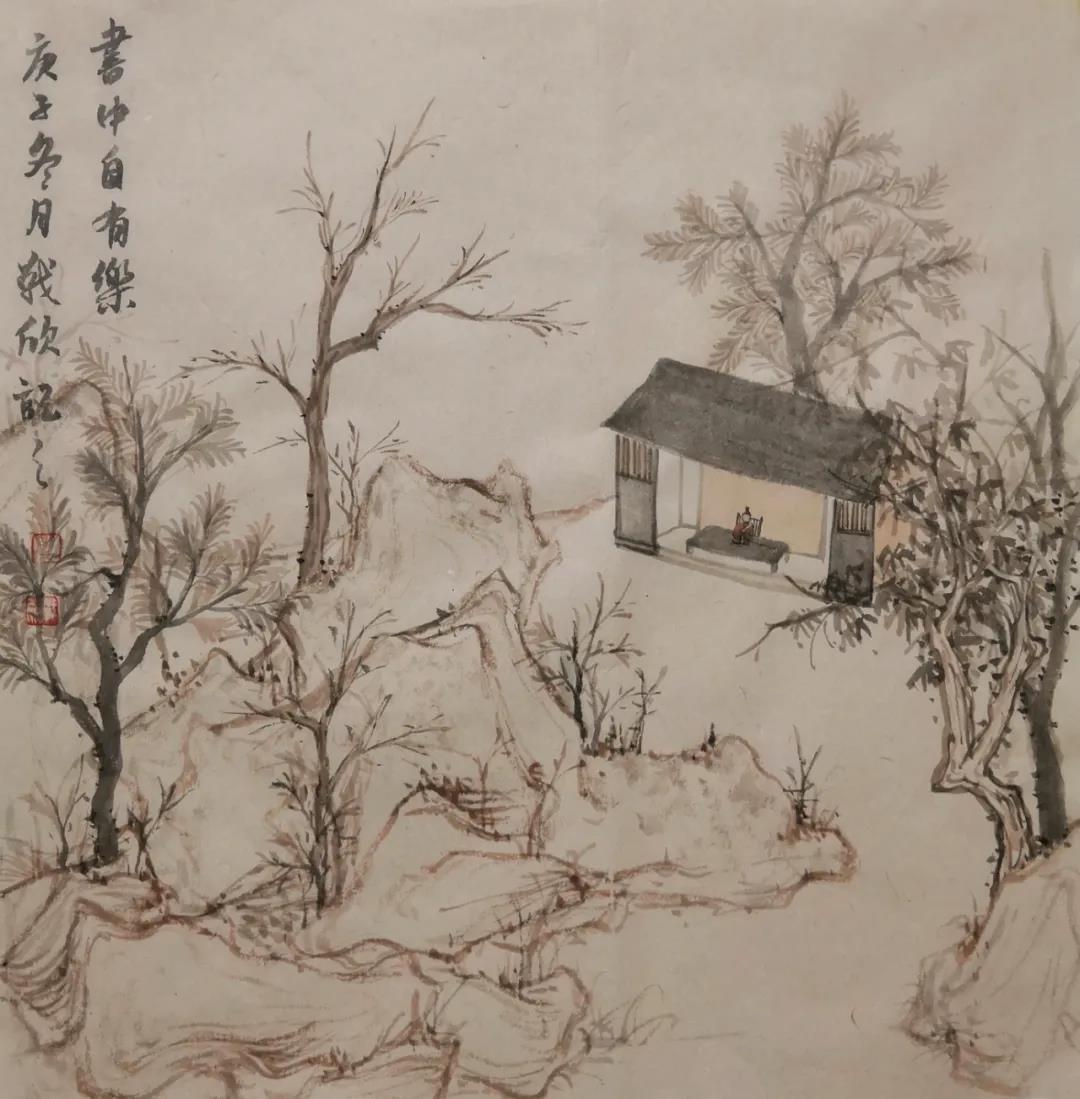 書中自有樂
庚子冬月戰欣記之